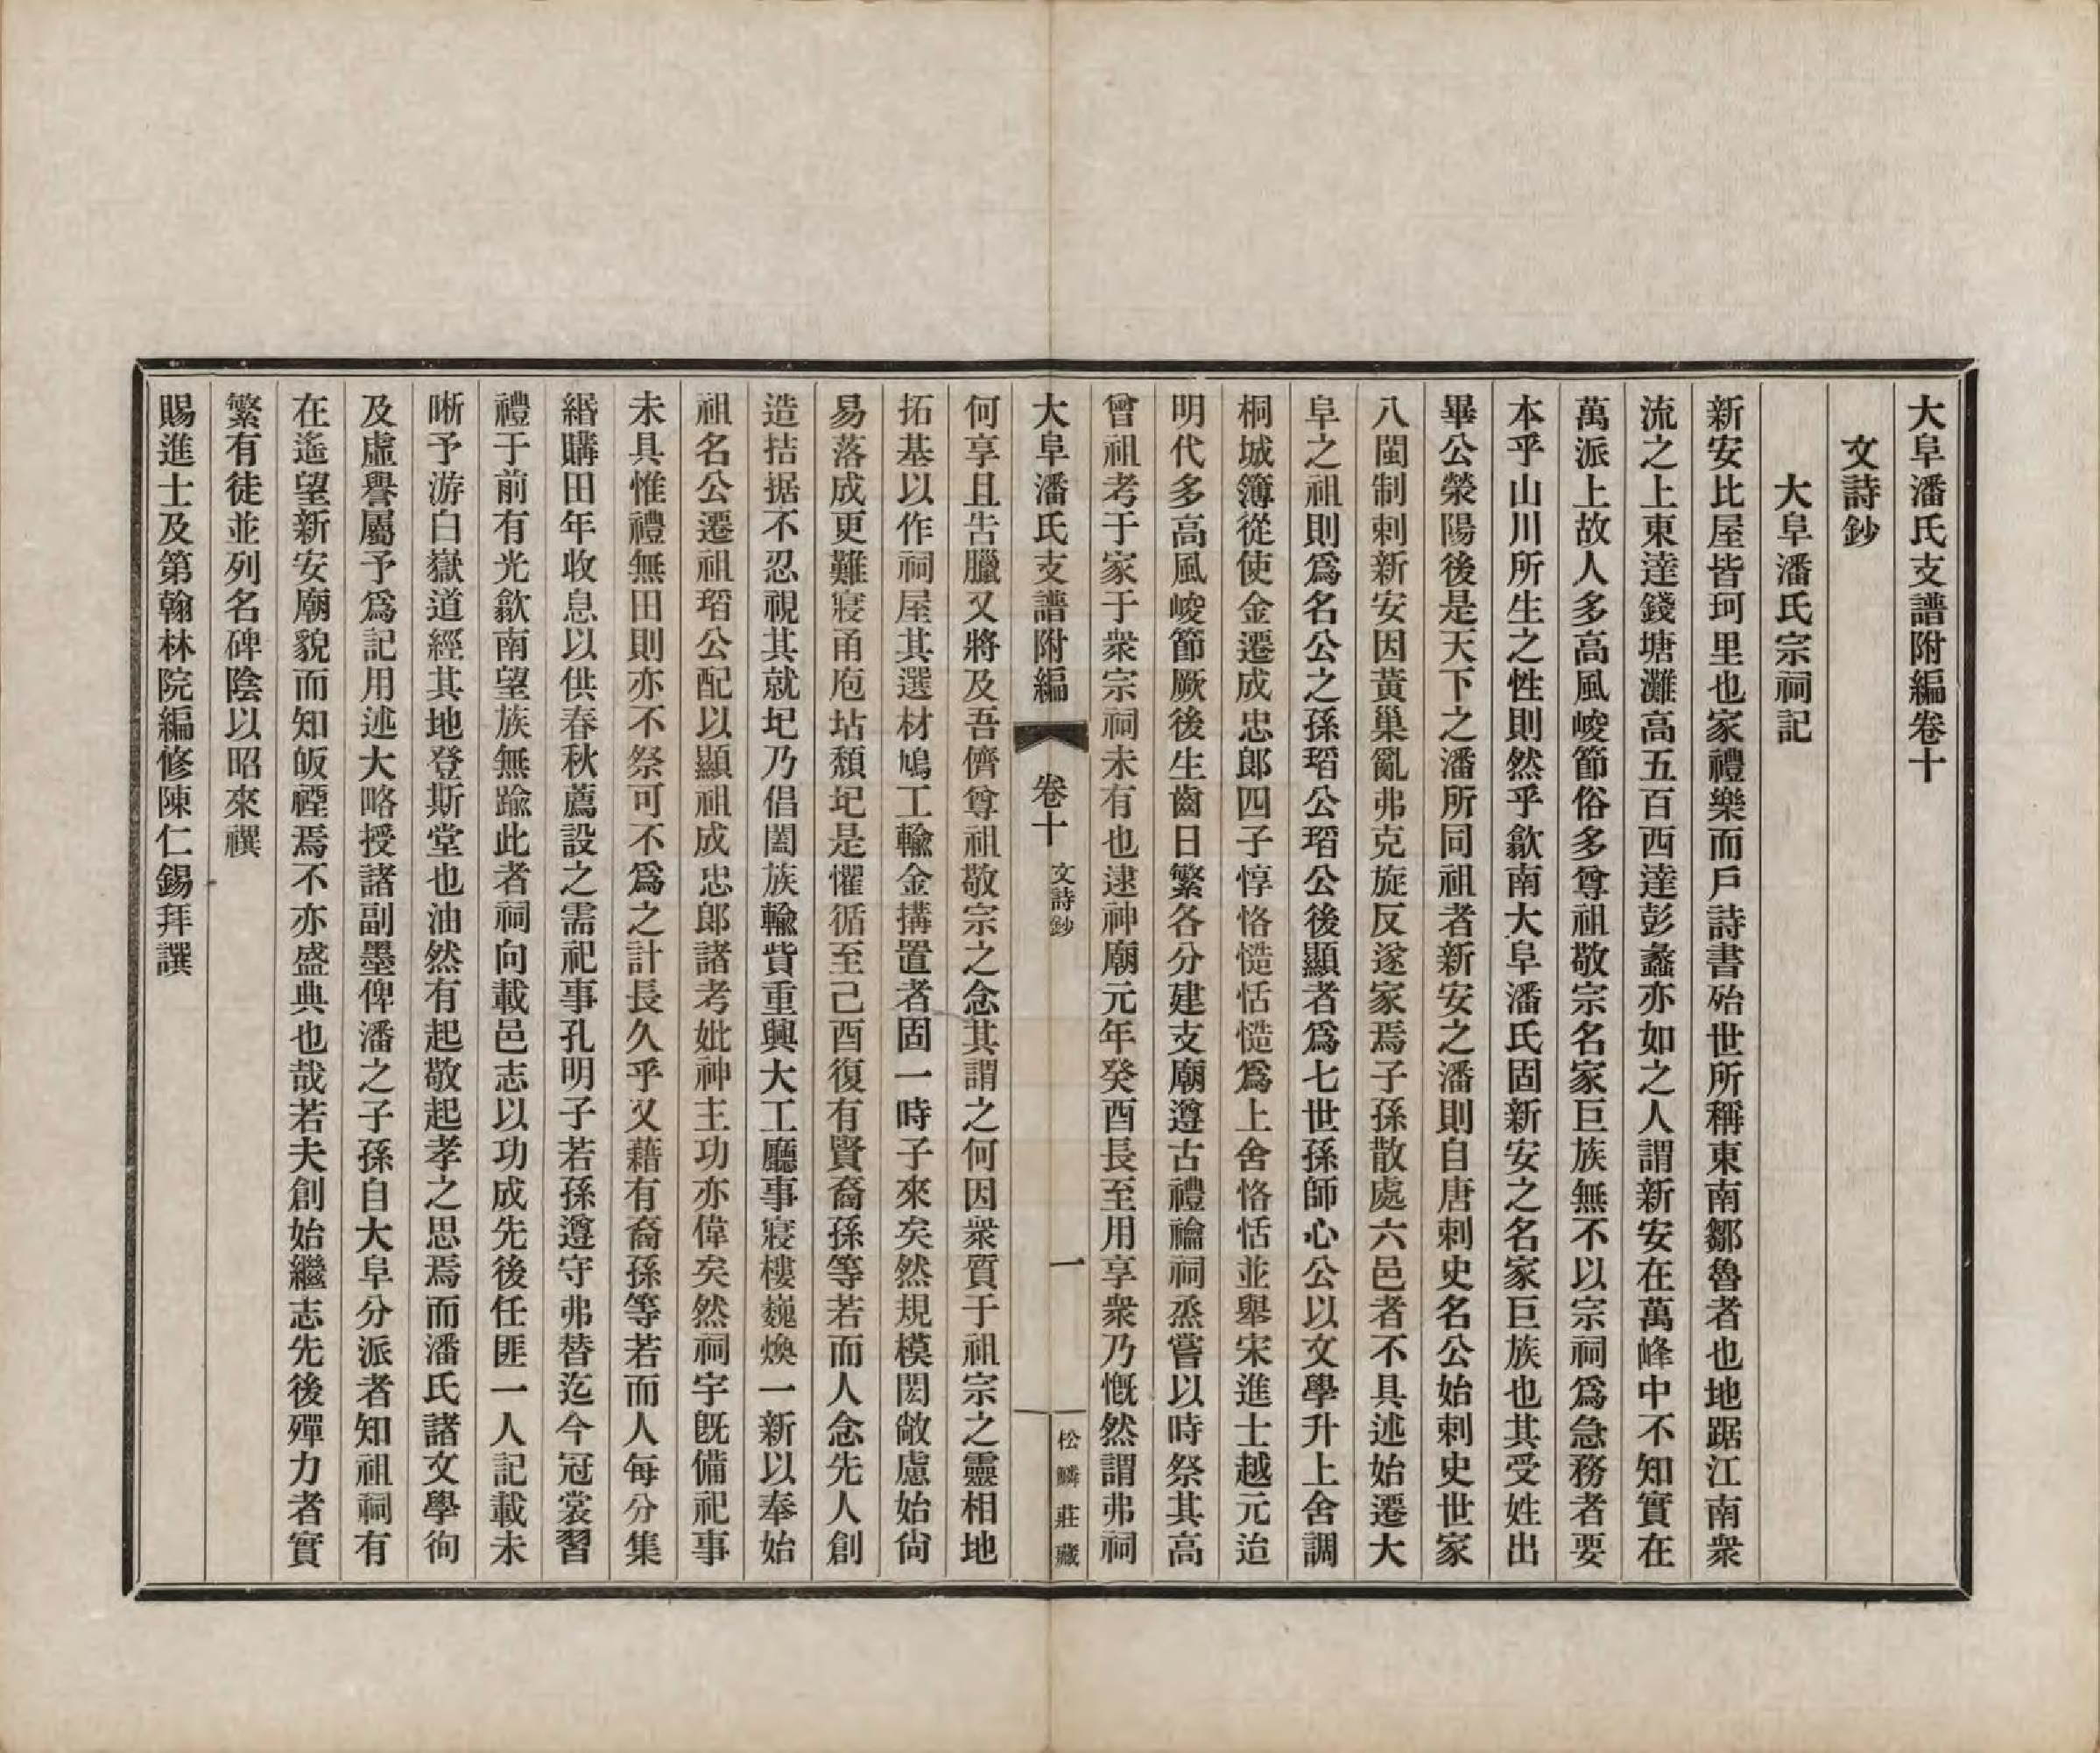 大阜潘氏支譜附編卷十
文詩鈔
大阜潘氏宗祠記
新安比屋皆珂里也家禮樂而戶詩書殆世所稱東南鄒魯者也地踞江南衆
流之上東達錢塘灘高五百西達彭蠡亦如之人謂新安在萬峰中不知實在
萬派上故人多高風峻節俗多尊祖敬宗名家巨族無不以宗祠爲急務者要
本乎山川所生之性則然乎歙南大阜潘氏固新安之名家巨族也其受姓出
畢公滎陽後是天下之潘所同祖者新安之潘則自唐刺史名公始刺史世家
八閩制刺新安因黃巢亂弗克旋反遂家焉子孫散處六邑者不具述始遷大
阜之祖則爲名公之孫瑫公瑫公後顯者爲七世孫師心公以文學升上舍調
桐城簿從使金遷成忠郎四子惇恪慥恬慥爲上舍恪恬並舉宋進士越元迨
明代多高風峻節厥後生齒日繁各分建支廟遵古禮禴祠烝嘗以時祭其高
曾祖考于家于衆宗祠未有也逮神廟元年癸酉長至用享衆乃慨然謂弗祠
大阜潘氏支譜附編
卷十
文詩鈔
一
松鱗莊藏
何享且告臘又將及吾儕尊祖敬宗之念其謂之何因衆質于祖宗之靈相地
拓基以作祠屋其選材鳩工輸金搆置者固一時子來矣然規模閎敞慮始尙
易落成更難寢甬庖坫頹圮是懼循至己酉復有賢裔孫等若而人念先人創
造拮据不忍視其就圮乃倡闔族輸貲重興大工廳事寢樓巍煥一新以奉始
祖名公遷祖瑫公配以顯祖成忠郎諸考妣神主功亦偉矣然祠宇旣備祀事
未具惟禮無田則亦不祭可不爲之計長久乎又藉有裔孫等若而人每分集
緡購田年收息以供春秋薦設之需祀事孔明子若孫遵守弗替迄今冠裳習
禮于前有光歙南望族無踰此者祠向載邑志以功成先後任匪一人記載未
晰予游白嶽道經其地登斯堂也油然有起敬起孝之思焉而潘氏諸文學徇
及虛譽屬予爲記用述大略授諸副墨俾潘之子孫自大阜分派者知祖祠有
在遙望新安廟貌而知皈禋焉不亦盛典也哉若夫創始繼志先後殫力者實
繁有徒並列名碑陰以昭來禩
賜進士及第翰林院編修陳仁錫拜譔